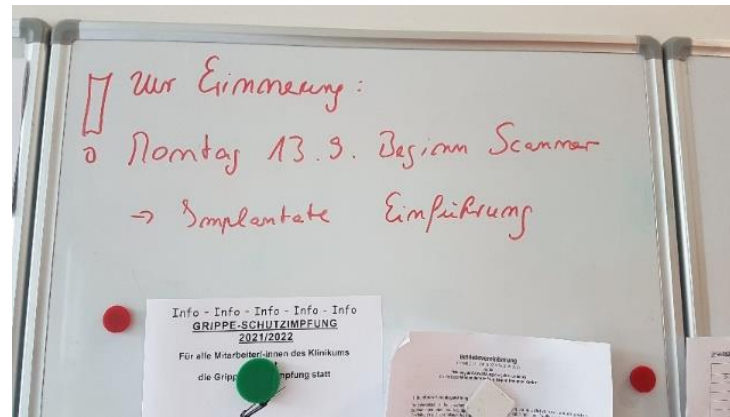 ! Zur Erinnerung:
Montag 13.9. Beginn Scanner
→ Implantate Einführung
Info - Info - Info - Info - Info
GRIPPE-SCHUTZIMPFUNG
2021/2022
Für alle Mitarbeiter/-innen des Klinikums
die Gripp mpfung statt
Betriebsvereinbarung